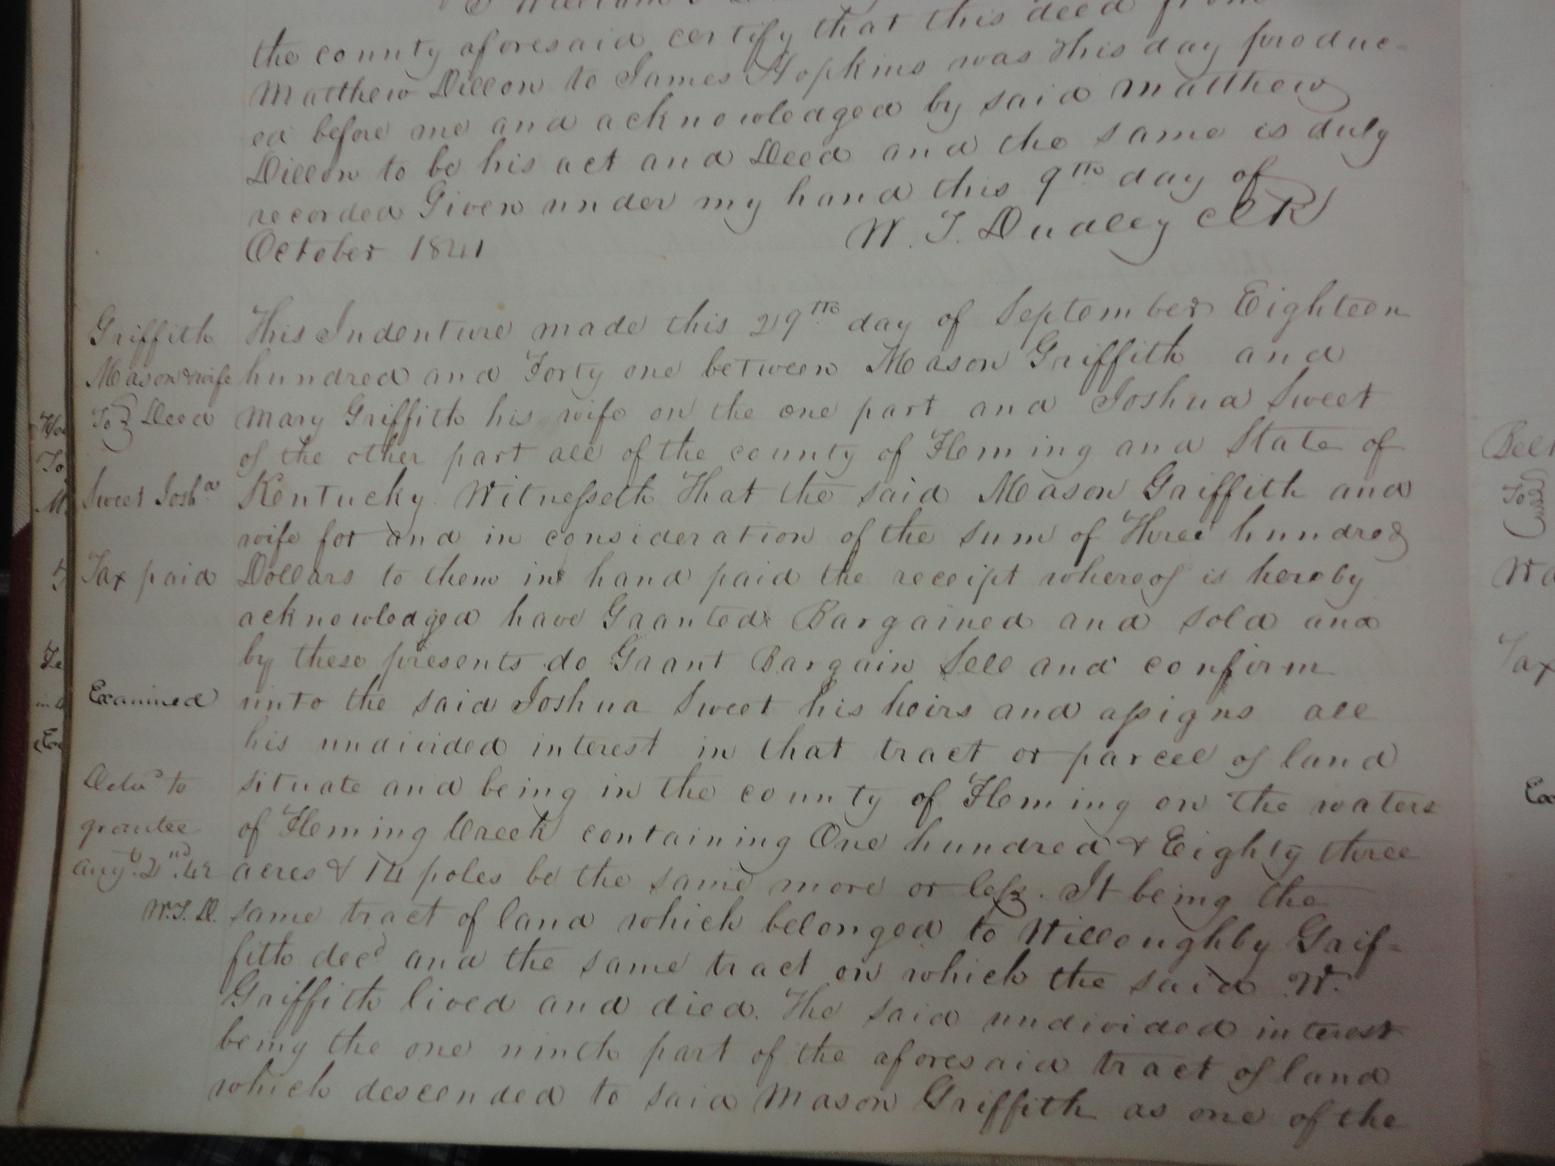 the county aforesaid certify that this deed from
Matthew Dillon to James Hopkins was this day produc-
ed before me and acknowledged by said Matthew
Dillon to be his act and Deed and the same is duly
recorded Given under my hand this 9th day of
October 1841
W. T. Dudley Clk
Griffith
Mason & wife
To } Deed
Sweet Josha
Tax paid
Examined
Deld to
grantee
Augt 2nd 42
W.T.D.
This Indenture made this 29th day of September Eighteen
hundred and Forty one between Mason Griffith and
Mary Griffith his wife on the one part and Joshua Sweet
of the other part all of the county of Fleming and State of
Kentucky. Witnesseth That the said Mason Griffith and
wife for and in consideration of the sum of Three hundred
Dollars to them in hand paid the receipt whereof is hereby
acknowledged have Granted Bargained and sold and
by these presents do Grant Bargain Sell and confirm
unto the said Joshua Sweet his heirs and assigns all
his undivided interest in that tract or parcel of land
situate and being in the county of Fleming on the waters
of Fleming Creek containing One hundred & Eighty three
acres & 14 poles be the same more or less. It being the
same tract of land which belonged to Willoughby Grif-
fith decd and the same tract on which the said W.
Griffith lived and died. The said undivided interest
being the one ninth part of the aforesaid tract of land
which descended to said Mason Griffith as one of the
Tax